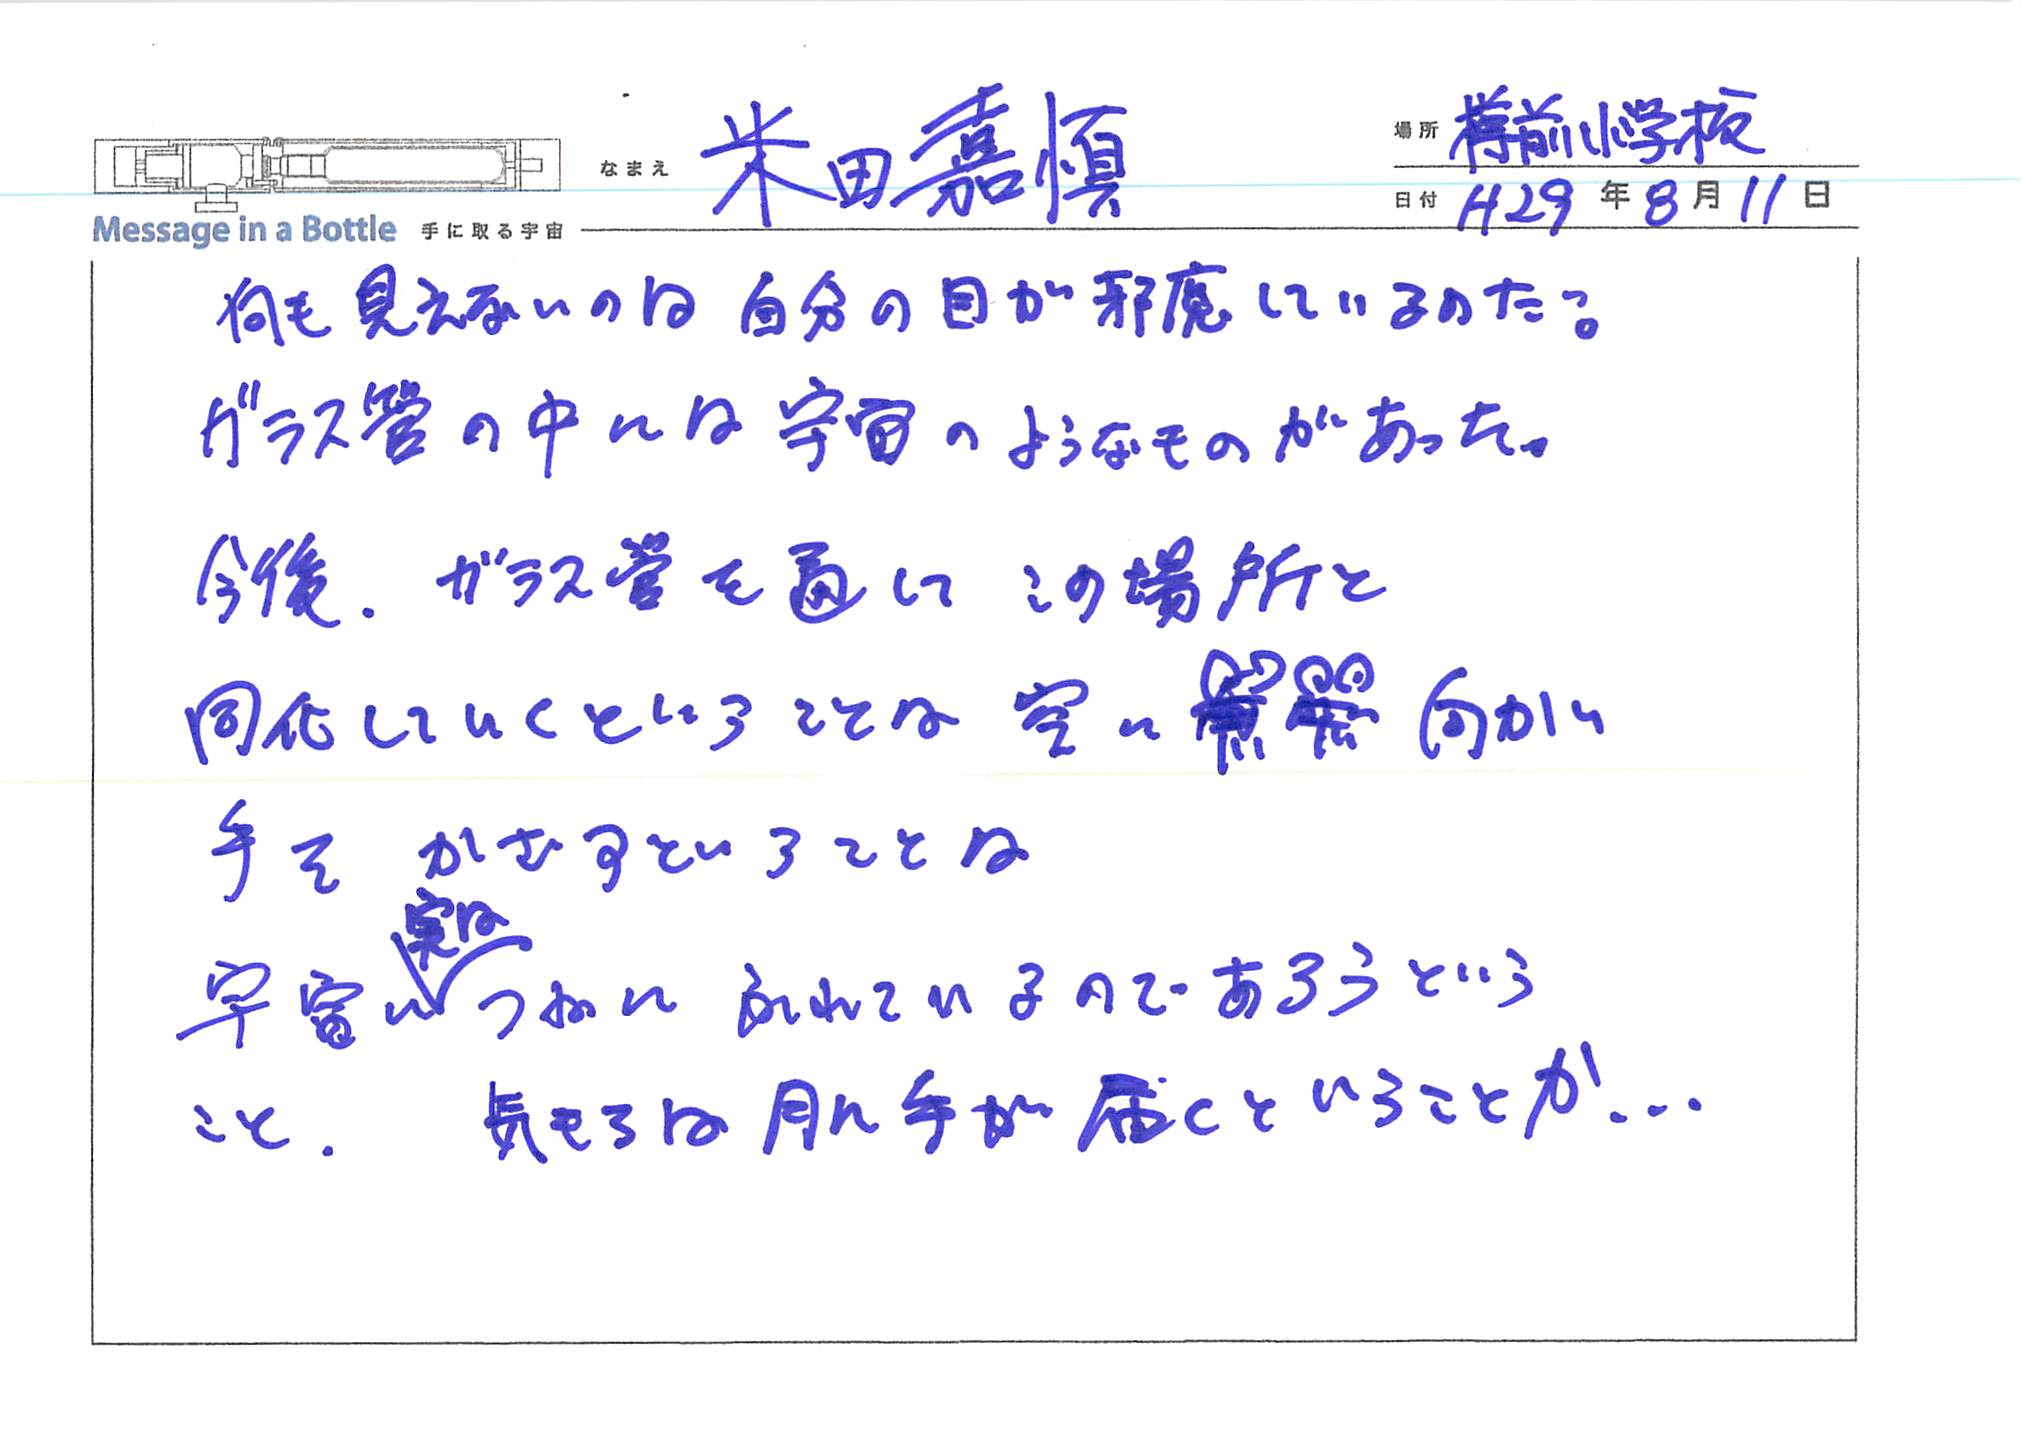 なまえ 米田嘉慎
場所 樽前小学校
日付 H29年8月11日
Message in a Bottle 手に取る宇宙
何も見えないのは自分の目が邪魔しているのだ。
ガラス管の中には宇宙のようなものがあった。
今後、ガラス管を通してこの場所と
同化していくということは空に 向かい
手をかざすということは
実は
宇宙につねに ふれているのであろうという
こと、 気もちは月に手が届くということか…